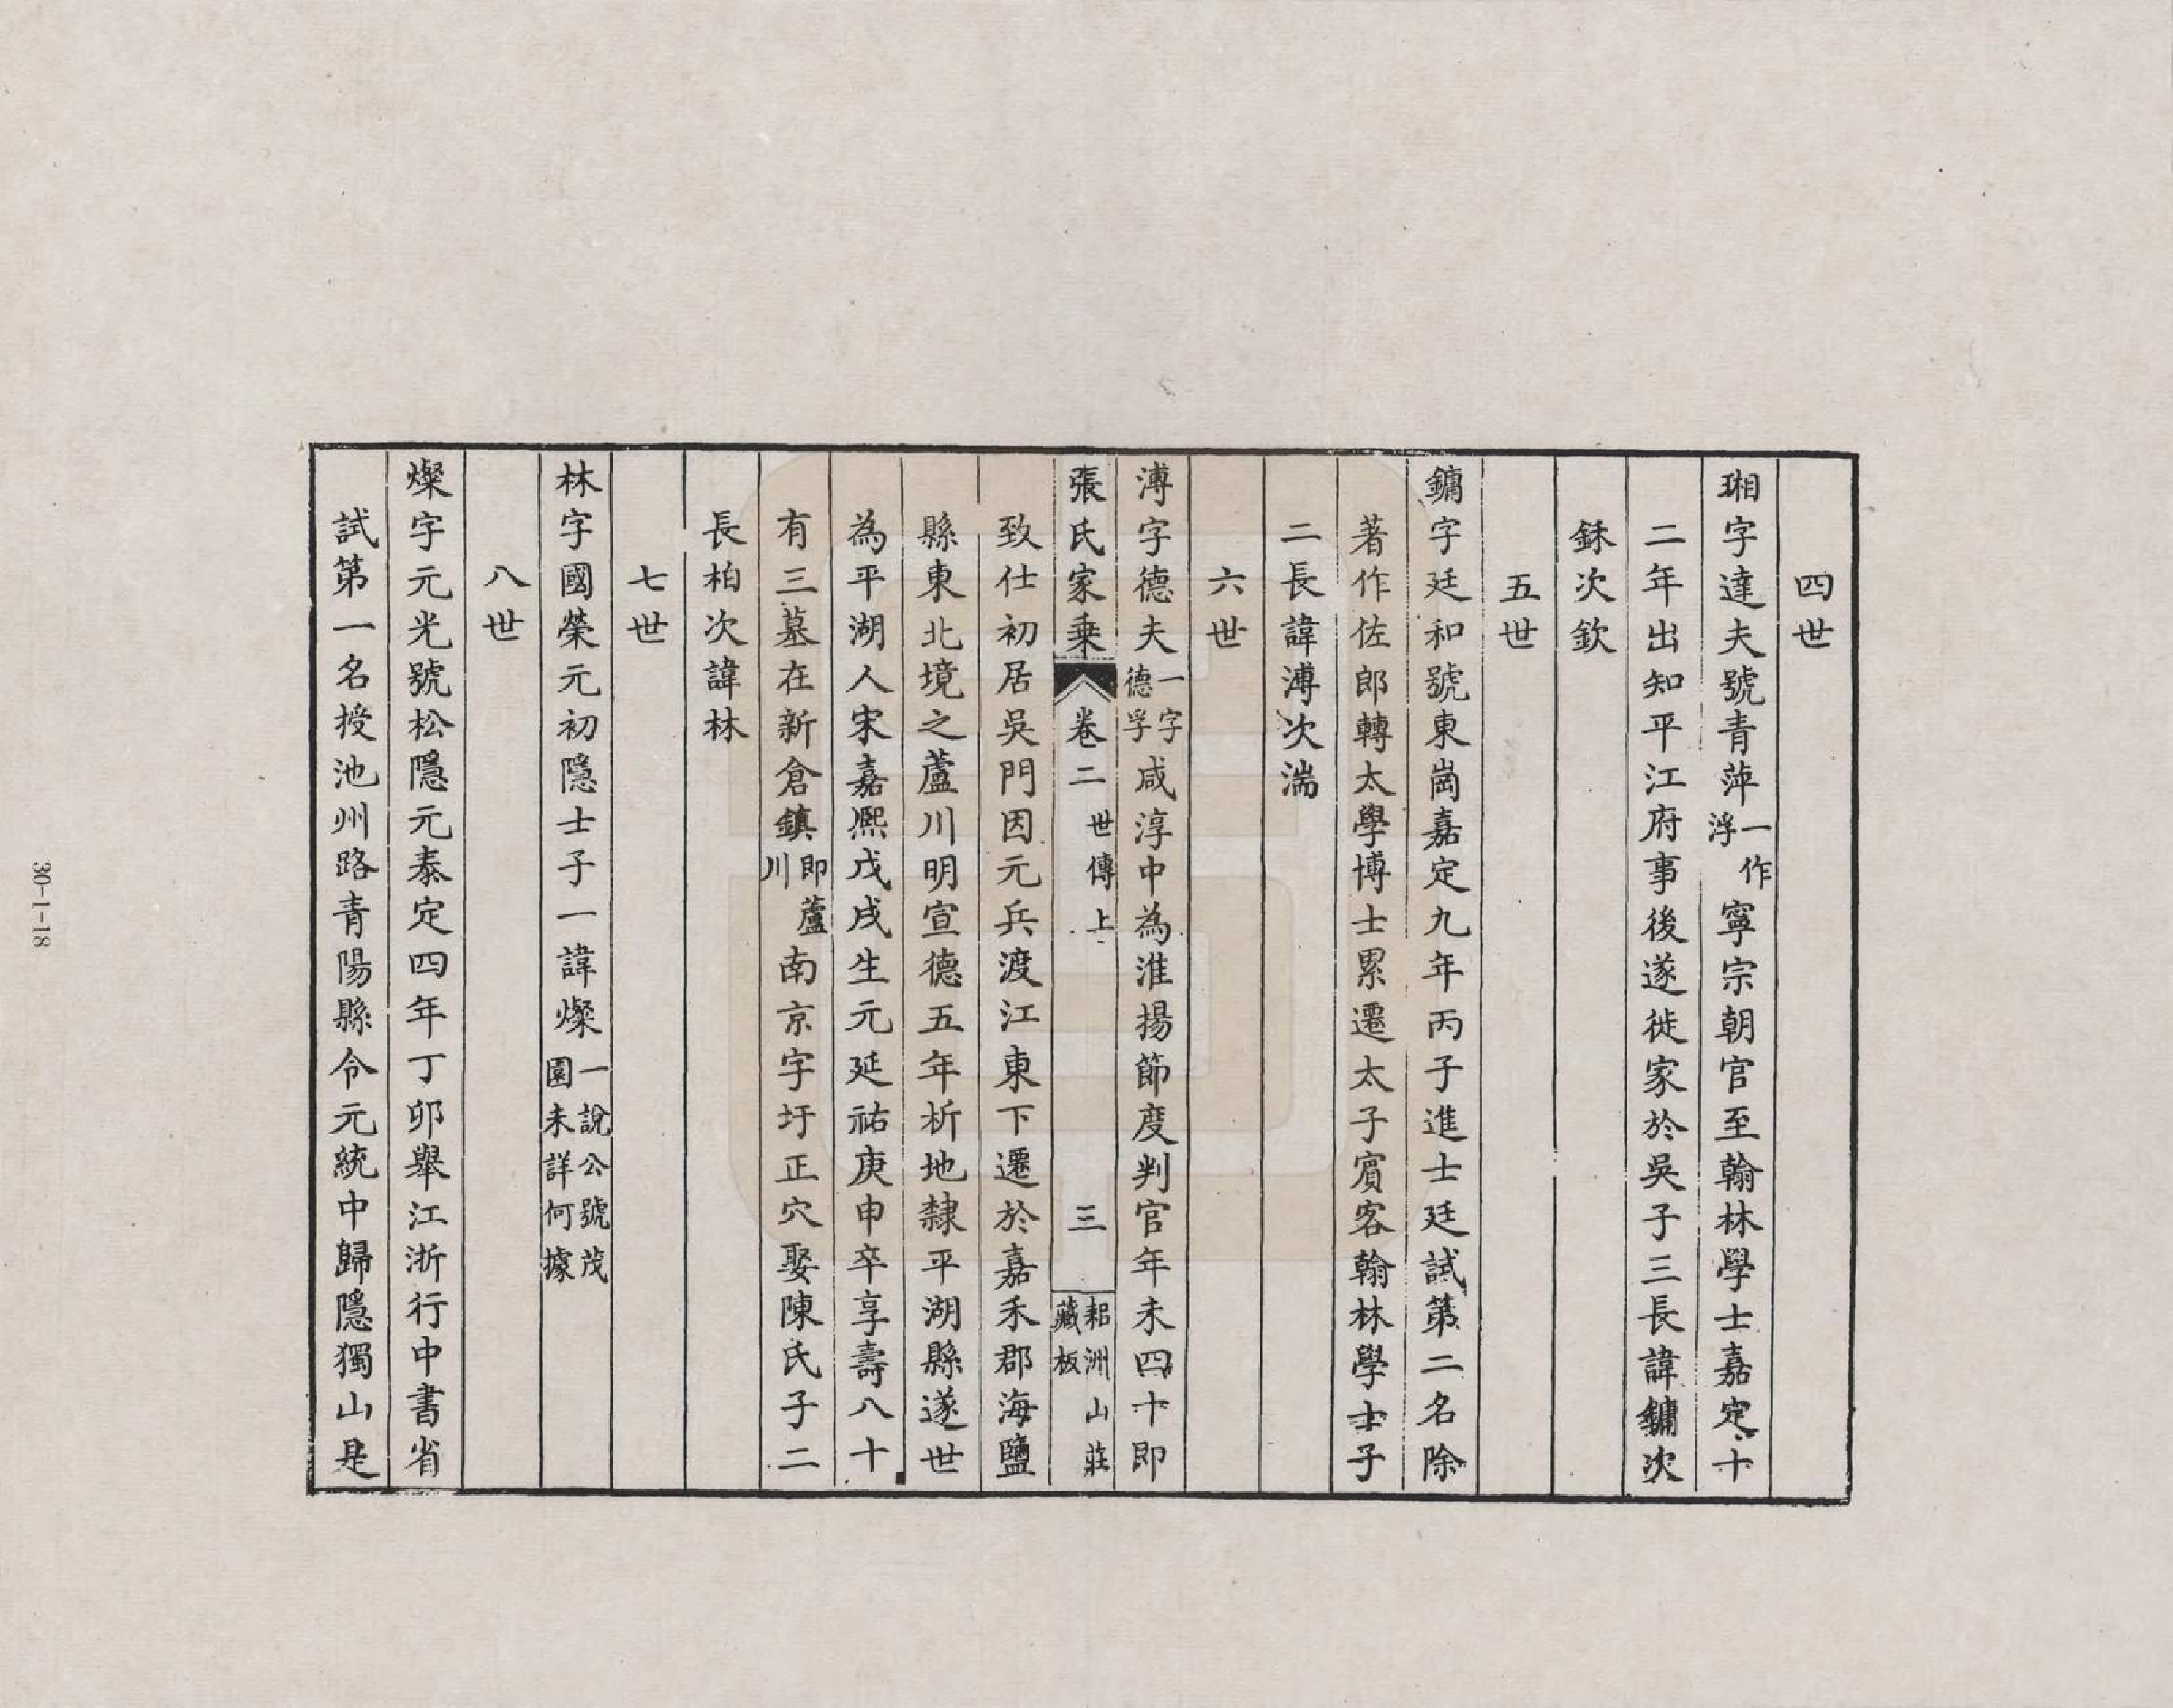 四世
琱字達夫號青萍一作浮寧宗朝官至翰林學士嘉定十
二年出知平江府事後遂徙家於吳子三長諱鏞次
銾次欽
五世
鏞字廷和號東崗嘉定九年丙子進士廷試第二名除
著作佐郎轉太學博士累遷太子賓客翰林學士子
二長諱溥次湍
六世
溥字德夫一字德孚咸淳中為淮揚節度判官年未四十即
張氏家乘 卷二 世傳上 三 耜洲山莊藏板
致仕初居吳門因元兵渡江東下遷於嘉禾郡海鹽
縣東北境之蘆川明宣德五年析地隸平湖縣遂世
為平湖人宋嘉熙戊戌生元延祐庚申卒享壽八十
有三墓在新倉鎮即蘆川南京字圩正穴娶陳氏子二
長柏次諱林
七世
林字國榮元初隱士子一諱燦一說公號茂園未詳何據
八世
燦字元光號松隱元泰定四年丁卯舉江浙行中書省
試第一名授池州路青陽縣令元統中歸隱獨山是
30-1-18